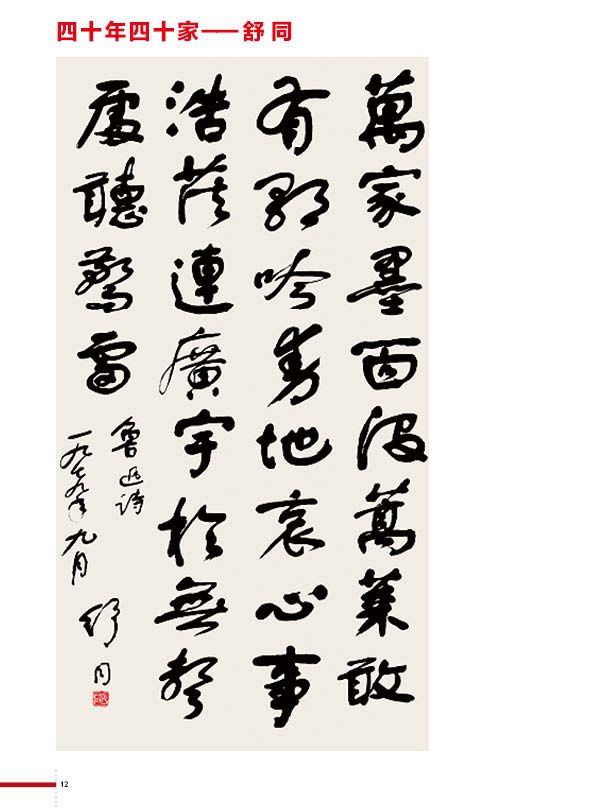 四十年四十家——舒同
萬家墨面沒蒿萊敢
有歌吟動地哀心事
浩茫連廣宇於無聲
處聽驚雷
魯迅詩
一九七九年九月
舒同
12